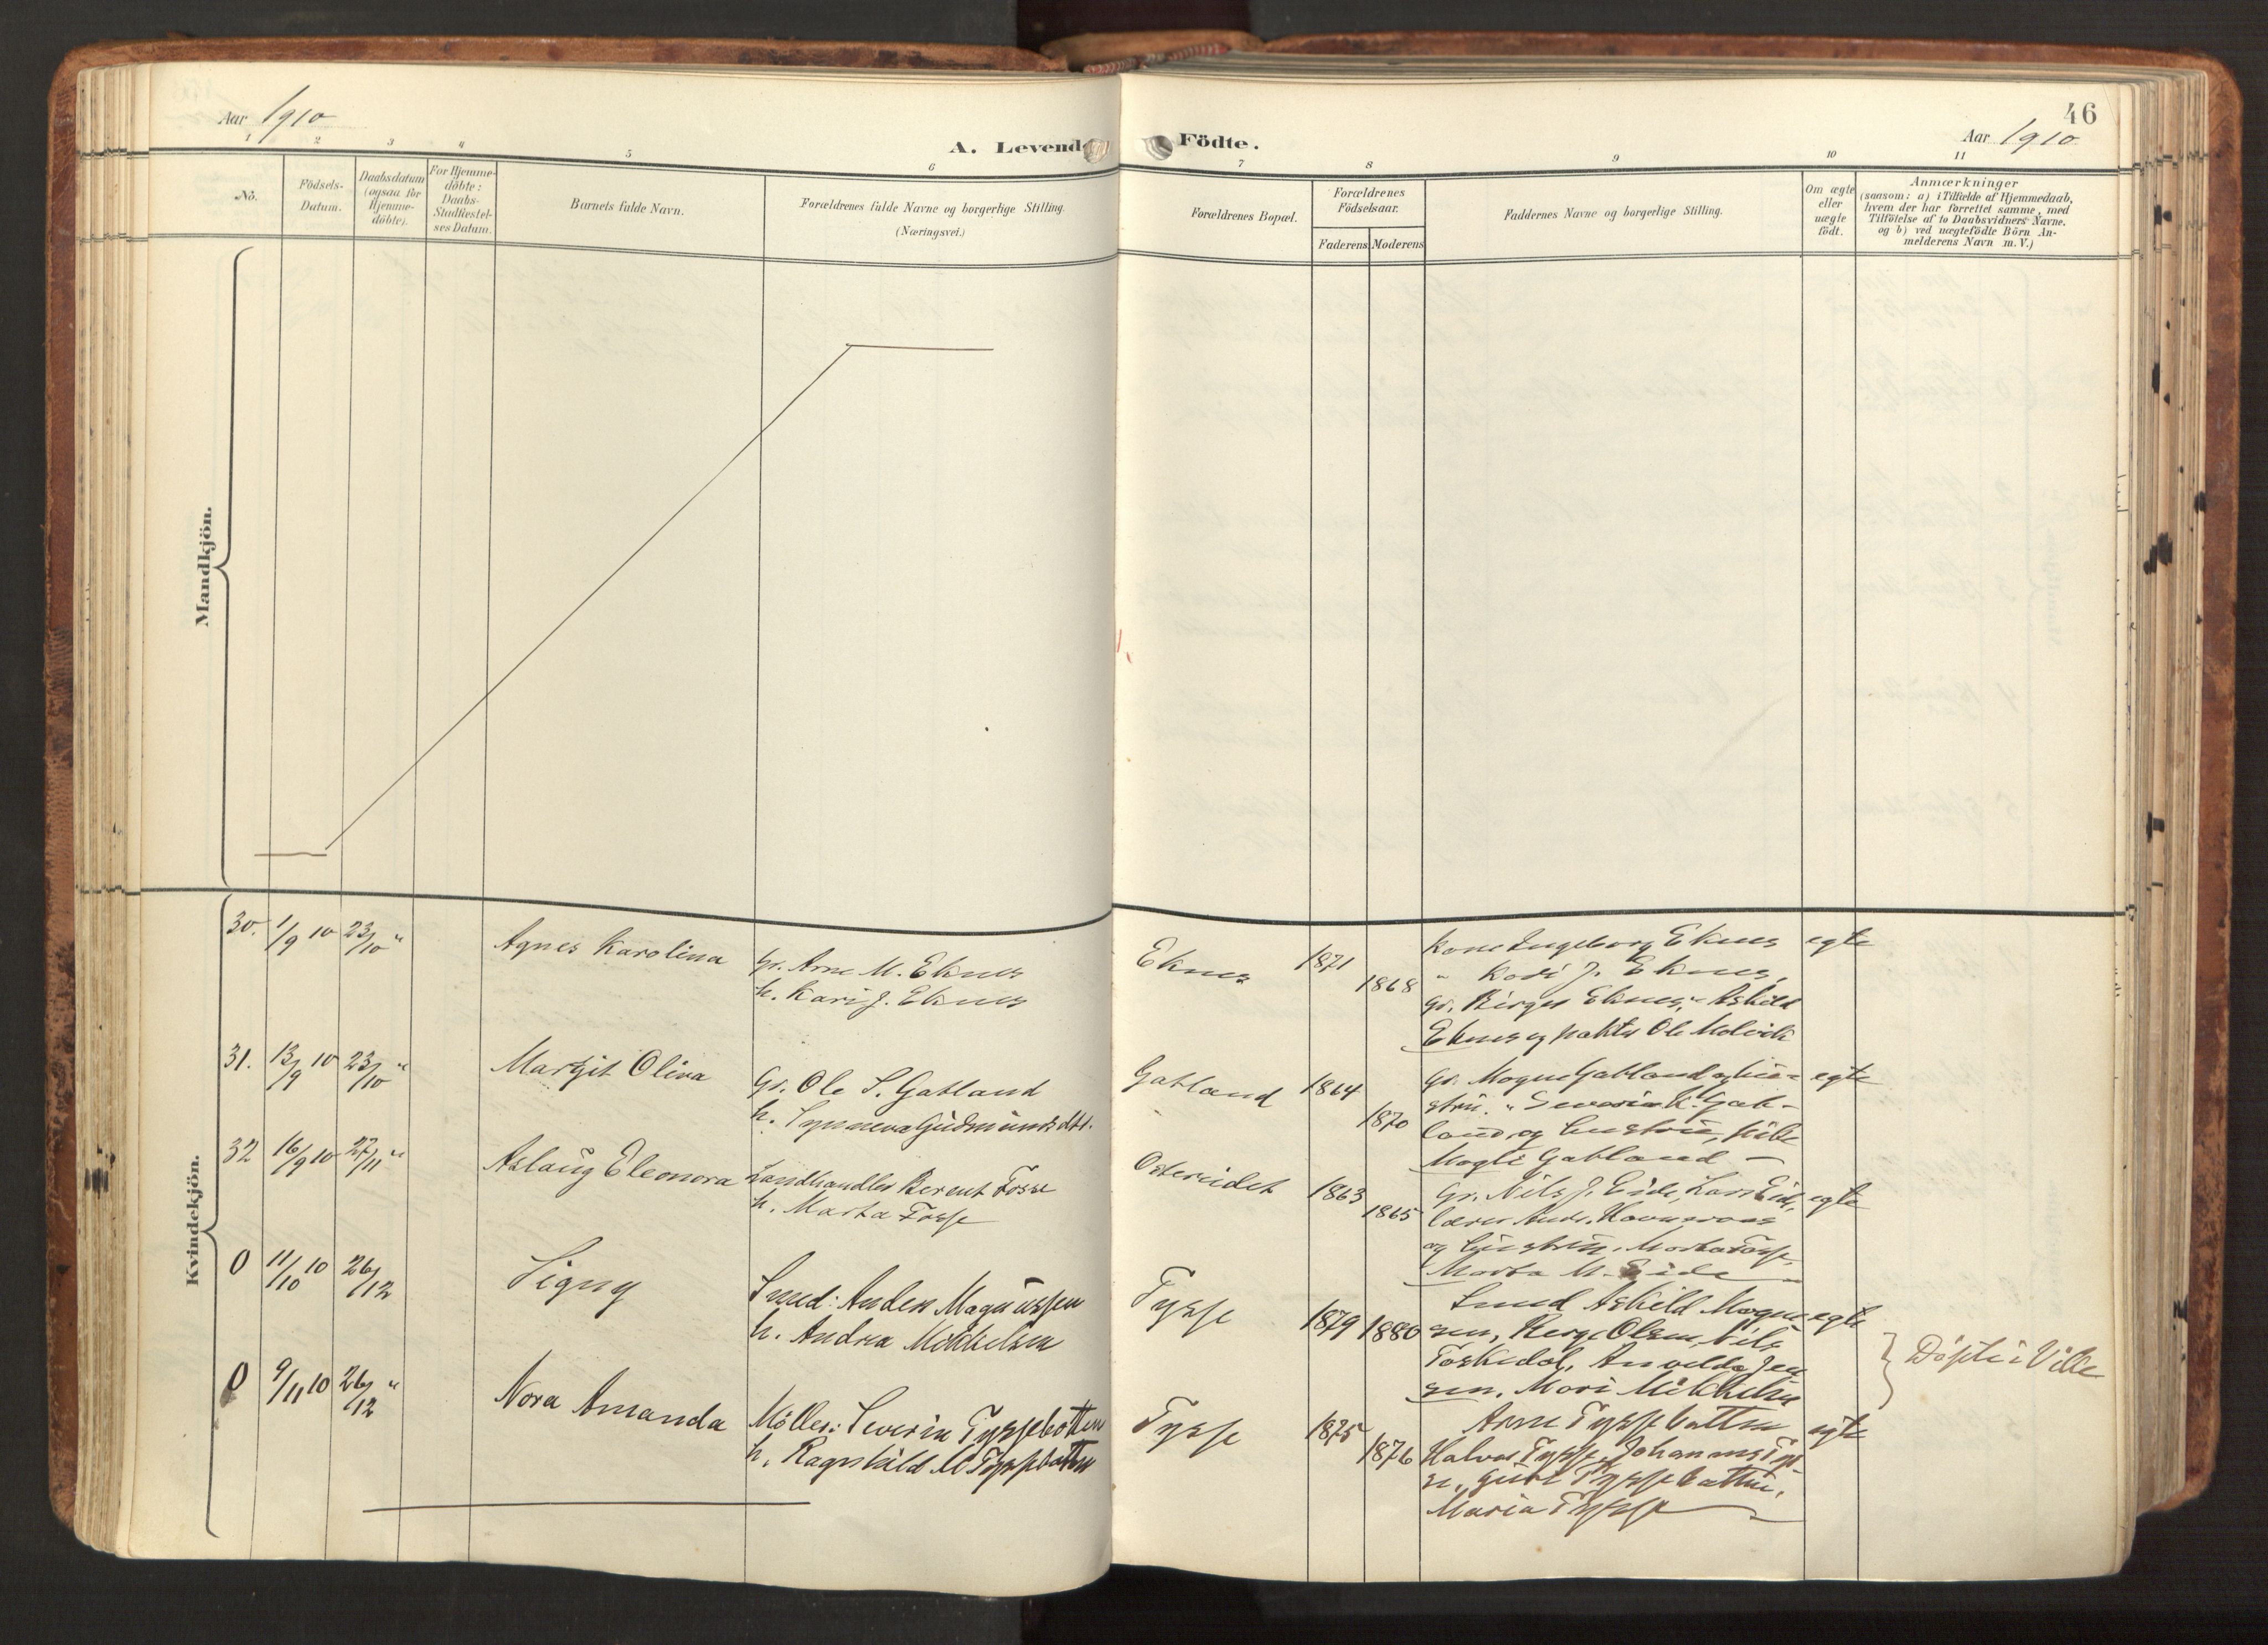 46
Aar 1910
A. Levende Födte.
Aar 1910
1 2 3 4 5 6 7 8 9 10 11
No.
Födsels-
Datum.
Daabsdatum
(ogsaa for
Hjemme-
döbte).
For Hjemme-
döbte:
Daabs-
Stadfæstel-
ses Datum.
Barnets fulde Navn.
Forældrenes fulde Navne og borgerlige Stilling.
(Næringsvei.)
Forældrenes Bopæl.
Forældrenes
Födselsaar.
Faderens Moderens
Faddernes Navne og borgerlige Stilling.
Om ægte
eller
uægte
födt.
Anmærkninger
(saasom: a) i Tilfælde af Hjemmedaab,
hvem der har forrettet samme, med
Tilföielse af to Daabsvidners Navne.
og b) ved uægtefödte Börn An-
melderens Navn m. V.)
Mandkjön.
Kvindekjön.
30. 1/9 10 23/10 "
Agnes Karolina
Gr. Arne M. Eknes
h. Kari J. Eknes
Eknes
1871
1868
Kone Ingeborg Eknes
" Kari J. Eknes,
Gr. Birger Eknes, " Askild
Eknes og Ole Molvik
egte
31. 13/9 10 23/10 "
Margit Olina
Gr. Ole S. Gatland
h. Synneva Gudmundsdtr.
Gatland
1864
1870
Gr. Mogne Gatland og hu-
stru. " Severin K. Gat-
land og hustru, pike
Magli Gatland —
egte
32 16/9 10 27/11 "
Aslaug Eleonora
Landhandler Berent Fosse
h. Marta Fosse
Ostereidet
1863
1865
Gr. Nils J. Eide, Lars Eide,
lærer Andr.
og hustru, Marta Fosse,
Marta M. Eide
egte
0 11/10 10 26/12
Signy
Smed: Anders Magnussen
h. Andrea Mikkelsen
Tysse
1879 1880
Smed Askild Mogn-
sen, Olsen, Nils
Toskedal, Jen
sen, Mari Mikkelsen
egte
0 9/11 10 26/12 "
Nora Amanda
Möller: Severin Tyssebotten
h. Ragnhild M Tyssebotten
Tysse
1875
1876
Arne Tyssebotten
Halvor Tysse, Johannes Tys-
se, Guri Tyssebotten,
Maria Tysse
egte
Döpte i Ville